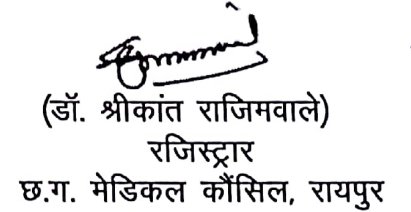 (डॉ. श्रीकांत राजिमवाले)
रजिस्ट्रार
छ.ग. मेडिकल कौंसिल, रायपुर